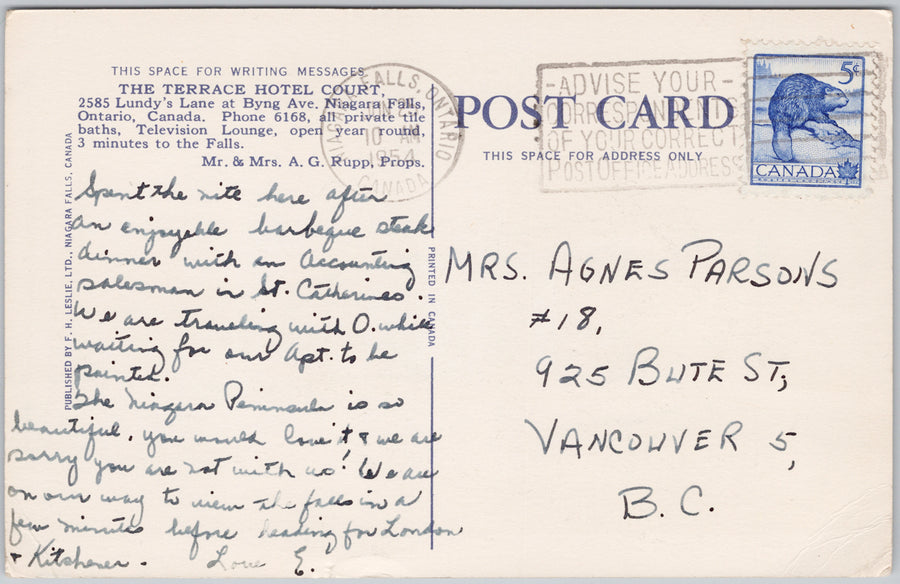 THIS SPACE FOR WRITING MESSAGES
THE TERRACE HOTEL COURT,
2585 Lundy's Lane at Byng Ave. Niagara Falls,
Ontario, Canada. Phone 6168, all private tile
baths, Television Lounge, open year round,
3 minutes to the Falls.
Mr. & Mrs. A. G. Rupp, Props.
Spent the nite here after
an enjoyable barbeque steak
dinner with an Accounting
salesman in St. Catherines.
We are traveling with O. while
waiting for our Apt. to be
painted.
The Niagara Peninsula is so
beautiful. you would love it & we are
sorry you are not with us! We are
on our way to view the falls in a
few minutes before heading for London
& Kitchener. Love E.
PUBLISHED BY F. H. LESLIE, LTD., NIAGARA FALLS, CANADA
PRINTED IN CANADA
NIAGARA FALLS, ONTARIO
10 AM
1954
CANADA
-ADVISE YOUR-
CORRESPONDENTS
OF YOUR CORRECT
POST OFFICE ADDRESS
POST CARD
THIS SPACE FOR ADDRESS ONLY
5¢
CANADA
MRS. AGNES PARSONS
#18,
925 BUTE ST,
VANCOUVER 5,
B.C.